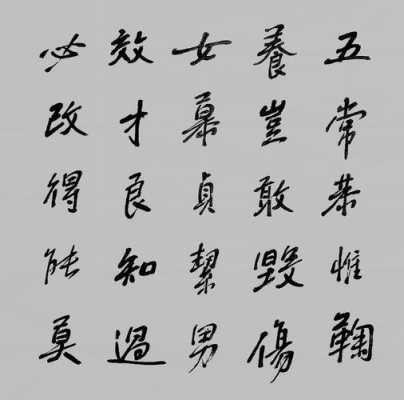 五常恭惟鞠
養豈敢毀傷
女慕貞絜男
效才良知過
必改得能莫